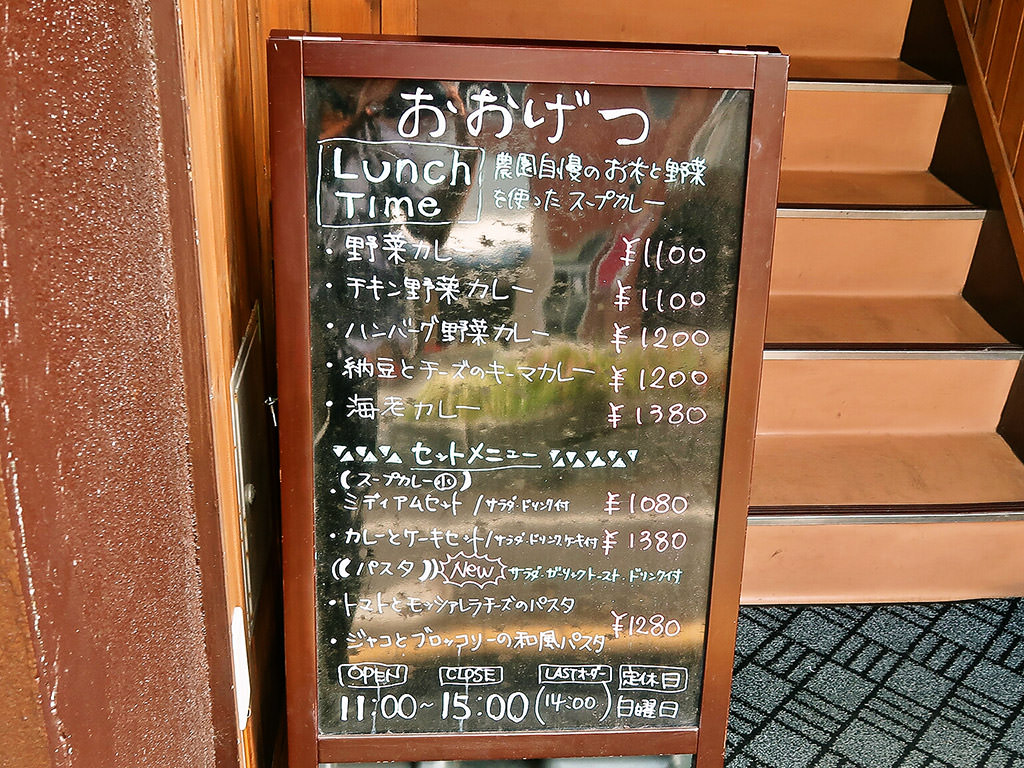 おおげつ
Lunch Time
農園自慢のお米と野菜
を使ったスープカレー
・野菜カレー ¥1100
・チキン野菜カレー ¥1100
・ハンバーグ野菜カレー ¥1200
・納豆とチーズのキーマカレー ¥1200
・海老カレー ¥1380
セットメニュー
(スープカレー小)
・ミディアムセット/サラダ・ドリンク付 ¥1080
・カレーとケーキセット/サラダ・ドリンク・ケーキ付 ¥1380
((パスタ)) New サラダ・ガーリックトースト・ドリンク付
・トマトとモッツァレラチーズのパスタ
・ジャコとブロッコリーの和風パスタ ¥1280
OPEN CLOSE LASTオーダー 定休日
11:00~15:00(14:00) 日曜日